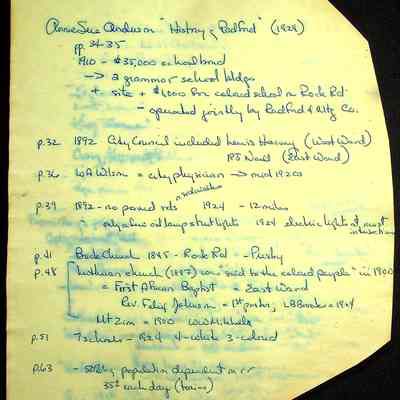 Anne Sue Anderson "History of Radford" (1924)
pp. 34-35
1910 - $35,000 school bond
→ 2 grammar school bldgs
+ site + $1,000 for colored school on Rock Rd
- operated jointly by Radford & Mtg Co.
p.32 1892 City Council included Lewis Harvey (West Ward)
Ward (East Ward)
p.36 Wilson = city physician → mid 1920s
p.39 1892 - no paved rds or sidewalks 1924 - 12 miles
only a few oil lamp street lights 1924 electric lights at most intersections
p.41 Church 1845 - Rock Rd - Presby
p.48 Lutheran church (1887) was "sold to the colored people" in 1900
= First African Baptist = East Ward
Rev. Johnson = 1st pastor, LB Brooks = 1924
Mt Zion = 1900 WW Nichols
p.51 7 schools - 1924 4-white 3-colored
p.63 - population dependent on rr
35 each day (trains)